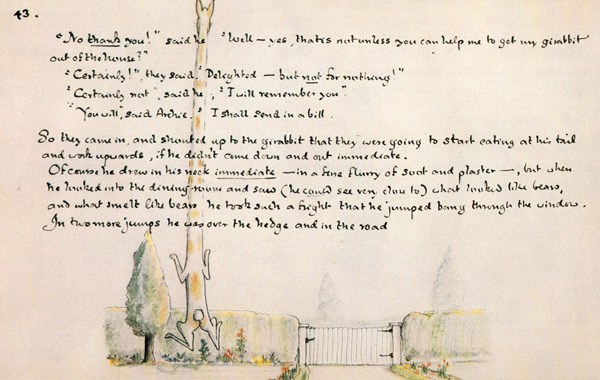 43.
"No thank you!" said he "Well — yes, that is not unless you can help me to get my girabbit
out of the house?"
"Certainly!", they said "Delighted — but not for nothing!"
"Certainly not", said he, "I will remember you".
"You will, said Archie, "I shall send in a bill.
So they came in, and shouted up to the girabbit that they were going to start eating at his tail
and work upwards, if he didn't come down and out immediate.
Of course he drew in his neck immediate — in a fine flurry of soot and plaster —, but when
he looked into the dining-room and saw (he could see very close to) what looked like bears,
and what smelt like bears he took such a fright that he jumped bang through the window.
In two more jumps he was over the hedge and in the road